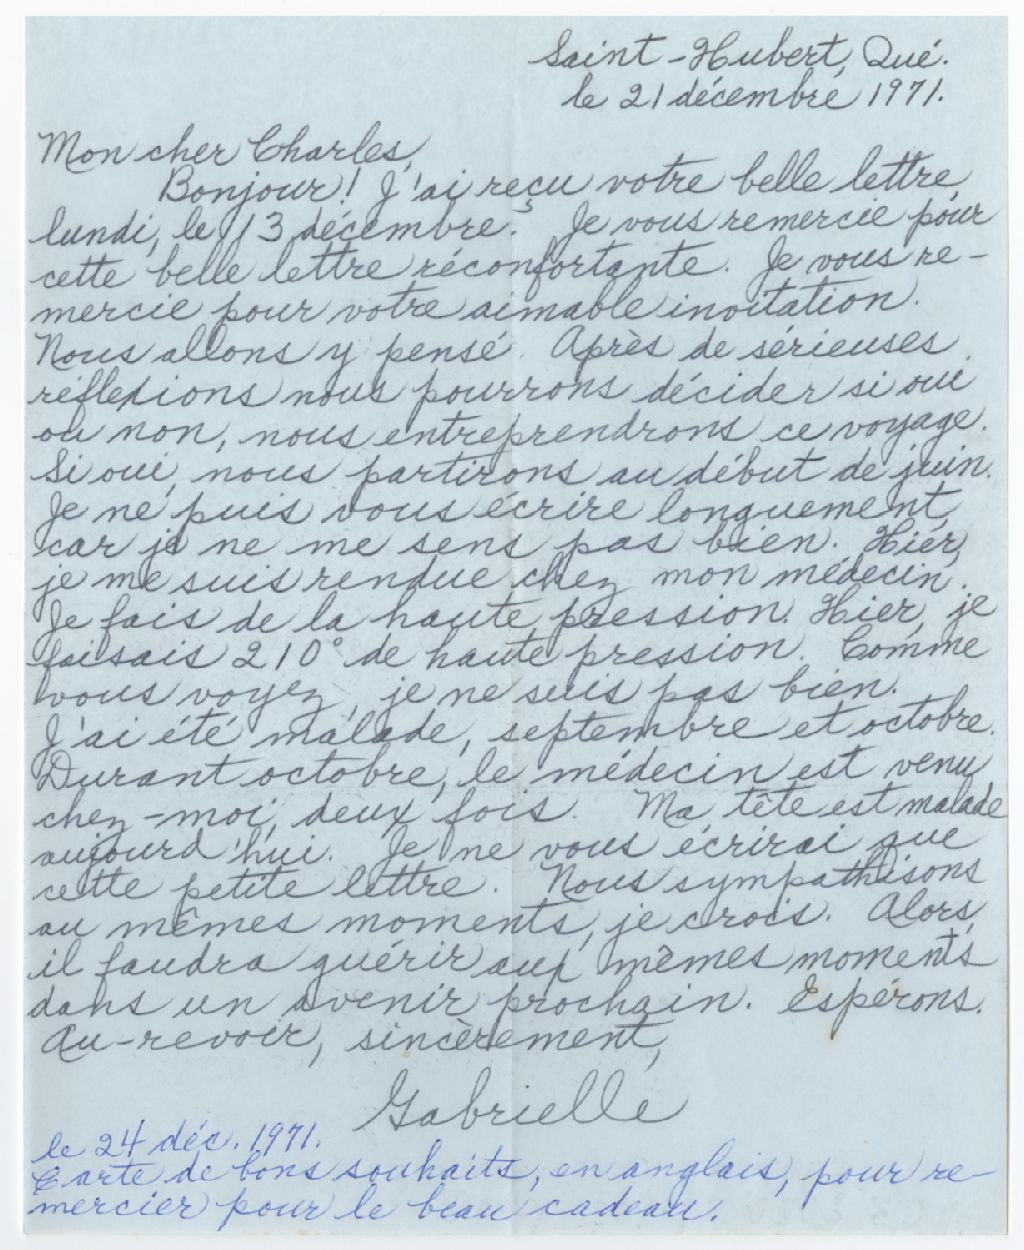 Saint-Hubert, Qué.
le 21 décembre 1971.
Mon cher Charles,
Bonjour! J'ai reçu votre belle lettre,
lundi, le 13 décembre. Je vous remercie pour
cette belle lettre réconfortante. Je vous re-
mercie pour votre aimable invitation.
Nous allons y pensé. Après de sérieuses
réflexions nous pourrons décider si oui
ou non, nous entreprendrons ce voyage.
Si oui, nous partirons au début de juin.
Je ne puis vous écrire longuement,
car je ne me sens pas bien. Hier,
je me suis rendue chez mon médecin.
Je fais de la haute pression. Hier, je
faisais 210° de haute pression. Comme
vous voyez, je ne suis pas bien.
J'ai été malade, septembre et octobre.
Durant octobre, le médecin est venu
chez-moi, deux fois. Ma tête est malade
aujourd'hui. Je ne vous écrirai que
cette petite lettre. Nous sympathisons
au mêmes moments, je crois. Alors,
il faudra guérir aux mêmes moments
dans un avenir prochain. Espérons.
Au-revoir, sincèrement,
Gabrielle
le 24 déc. 1971.
Carte de bons souhaits, en anglais, pour re-
mercier pour le beau cadeau.